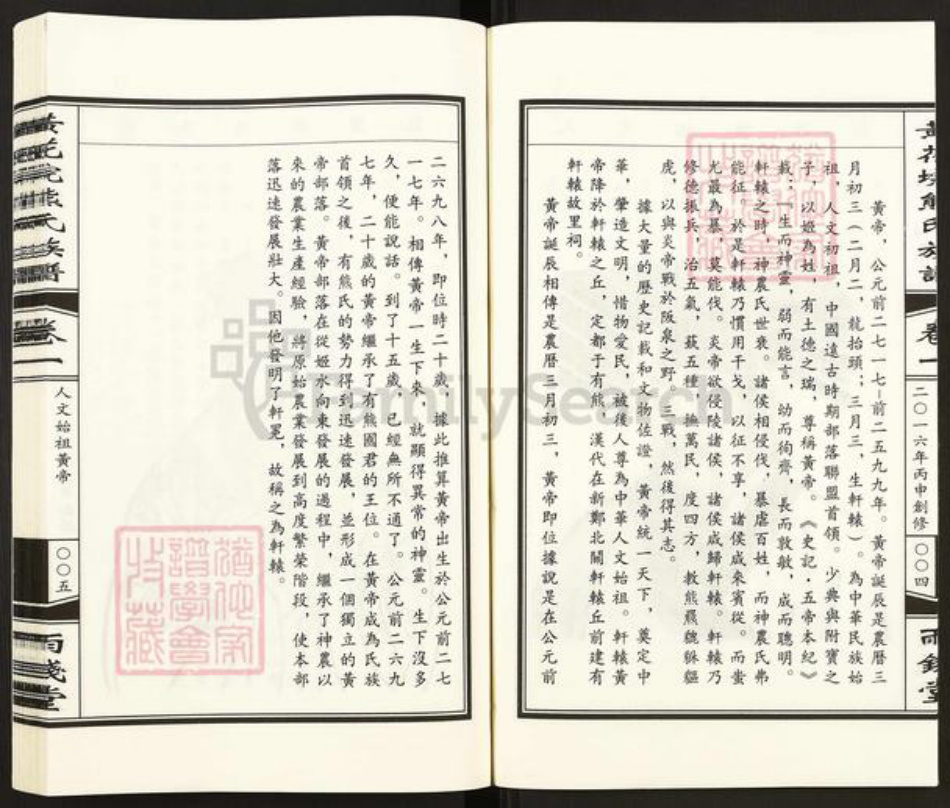 黃帝，公元前二七一七－前二五九九年。黃帝誕辰是農曆三
月初三（二月二，龍抬頭；三月三，生軒轅）。為中華民族始
祖，人文初祖，中國遠古時期部落聯盟首領。少典與附寶之
子，以姬為姓，有土德之瑞，尊稱黃帝。《史記·五帝本紀》
載：『生而神靈，弱而能言，幼而徇齊，長而敦敏，成而聰明。
軒轅之時，神農氏世衰。諸侯相侵伐，暴虐百姓，而神農氏弗
能征。於是軒轅乃慣用干戈，以征不享，諸侯咸來賓從。而蚩
尤最為暴，莫能伐。炎帝欲侵陵諸侯，諸侯咸歸軒轅。軒轅乃
修德振兵，治五氣，蓺五種，撫萬民，度四方，教熊羆貔貅貙
虎，以與炎帝戰於阪泉之野。三戰，然後得其志。
據大量的歷史記載和文物佐證，黃帝統一天下，奠定中
華，肇造文明，惜物愛民，被後人尊為中華人文始祖。軒轅黃
帝降於軒轅之丘，定都于有熊，漢代在新鄭北關軒轅丘前建有
軒轅故里祠。
黃帝誕辰相傳是農曆三月初三，黃帝即位據說是在公元前
二〇一六年丙申創修
〇〇四
二六九八年，即位時二十歲，據此推算黃帝出生於公元前二七
一七年。相傳黃帝一生下來，就顯得異常的神靈。生下沒多
久，便能說話。到了十五歲，已經無所不通了。公元前二六九
七年，二十歲的黃帝繼承了有熊國君的王位。在黃帝成為氏族
首領之後，有熊氏的勢力得到迅速發展，並形成一個獨立的黃
帝部落。黃帝部落在從姬水向東發展的過程中，繼承了神農以
來的農業生產經驗，將原始農業發展到高度繁榮階段，使本部
落迅速發展壯大。因他發明了軒冕，故稱之為軒轅。
卷一
人文始祖黃帝
〇〇五
FamilySearch